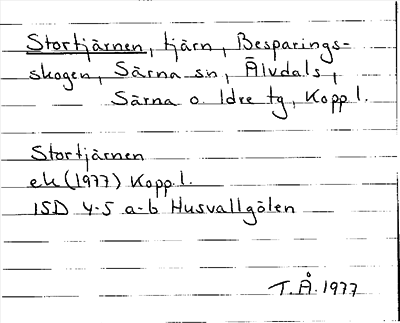 Stortjärnen, tjärn, Besparings-
skogen, Särna sn, Älvdals,
Särna o. Idre tg, Kopp l.
Stortjärnen
ek (1977) Kopp l.
15D 4-5 a-b Husvallgölen
T.Å. 1977